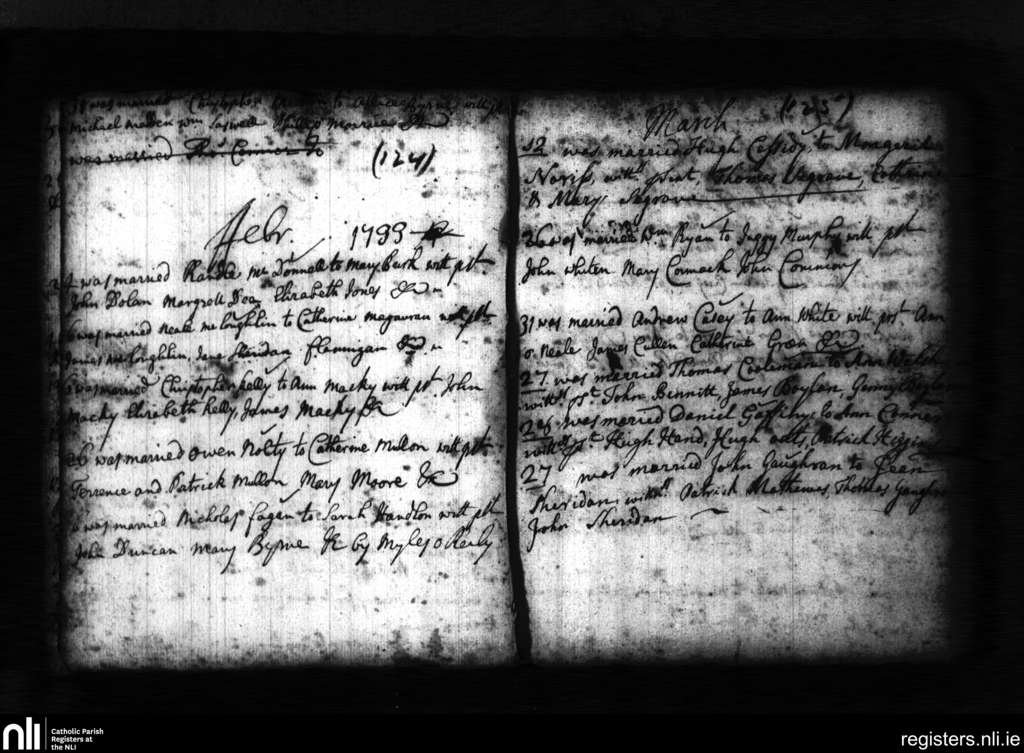 was married Christopher to with pt
Michael madden wm
was married Connor to
(124)
Febr. 1799
was married Randle Mc Donnall to Mary Burk with pst
John Dolan Margrett Doe Elizabeth Jones &c
was married Neale mcloughlin to Catherine magawran with pst
James mcloughlin, Jane Sheridan Flannigan &c
was married Christopher Kelly to Ann Macky with pt John
Macky Elizabeth Kelly, James Macky &c
26 was married Owen Nolty to Catherine Mullon with pt
Terrence and Patrick Mullon Mary Moore &c
was married Nicholas Fagen to Sarah Handlon with pt
John Duncan mary Byrne &c by Myles o Reily
March (125)
12 was married Hugh Cassidy, to
Noriss, with prsnt, Thomas Segrave, Catherine
& Mary Segrave
26 was married Wm Ryan to Judy Murphy with pst
John Whiten Mary Cormack John Commons
31 was married Andrew Casey to Ann White with prst Ann
o Neale James Cullen Catherine Green &c
27 was married Thomas Cooleman to Ann Welsh
with prst John Bennitt, James Boylan,
was married Daniel to Ann Connor
with pst Hugh Hand, Hugh Patrick Higgins
27 was married John Gaughran to Jean
Sheridan, with Patrick Mathewes, Thomas
John Sheridan
nli
Catholic Parish
Registers at
the NLI
registers.nli.ie